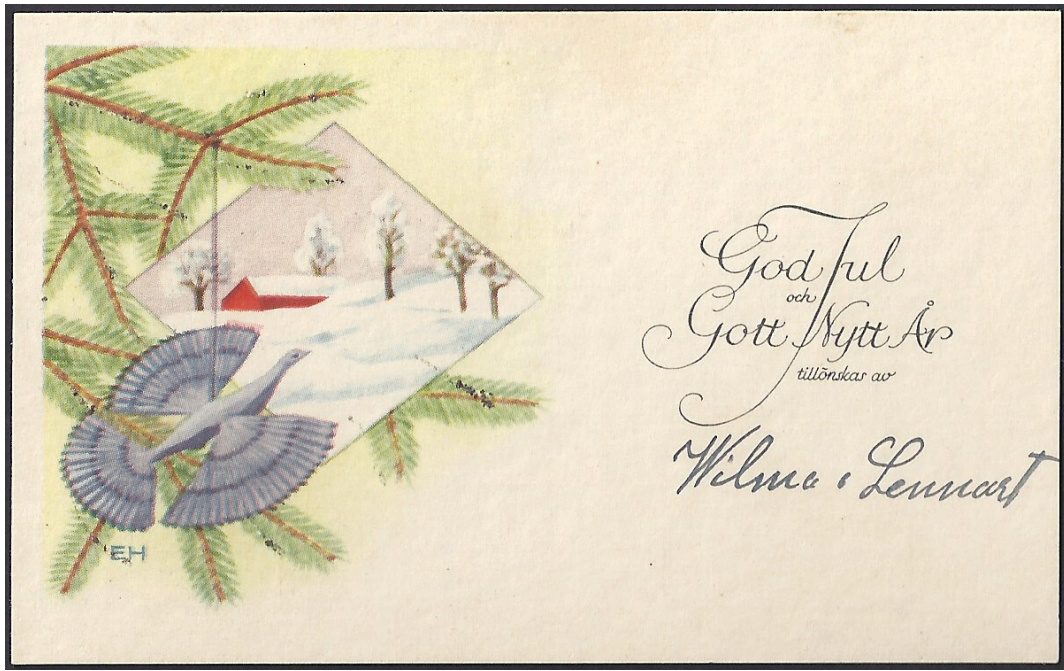 God Jul
och
Gott Nytt År
tillönskas av
Wilma & Lennart
EH